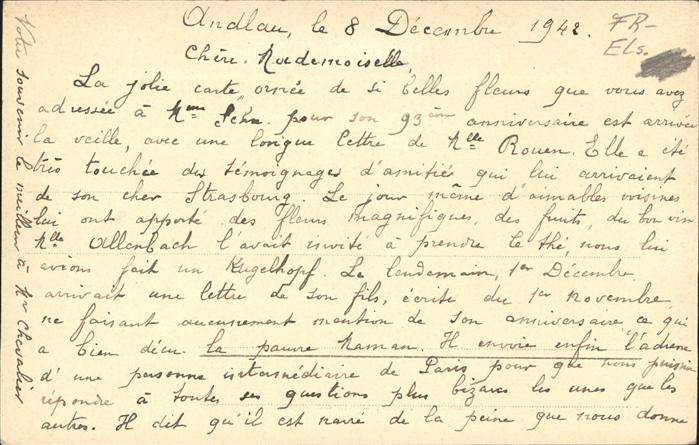 Andlau, le 8 Décembre 1942.
FR-
Els.
Chère Mademoiselle,
La jolie carte ornée de si belles fleurs que vous avez
adressée à Mme Schn. pour son 93ème anniversaire est arrivée
la veille, avec une longue lettre de Mlle Rouen. Elle a été
très touchée des témoignages d'amitiés qui lui arrivaient
de son cher Strasbourg. Le jour même d'aimables voisines
lui ont apporté des fleurs magnifiques, des fruits, du bon vin
Mlle Ullenbach l'avait invité à prendre le thé, nous lui
avions fait un Kugelhopf. Le lendemain, 1er Décembre
arrivait une lettre de son fils, écrite du 1er novembre
ne faisant aucunement mention de son anniversaire ce qui
a bien déçu la pauvre Maman. Il envoie enfin l'adresse
d'une personne intermédiaire de Paris pour que nous puissions
répondre à toutes ses questions plus bizares les unes que les
autres. Il dit qu'il est navré de la peine que nous donne
Votre souvenir le meilleur à Mr Chevalier